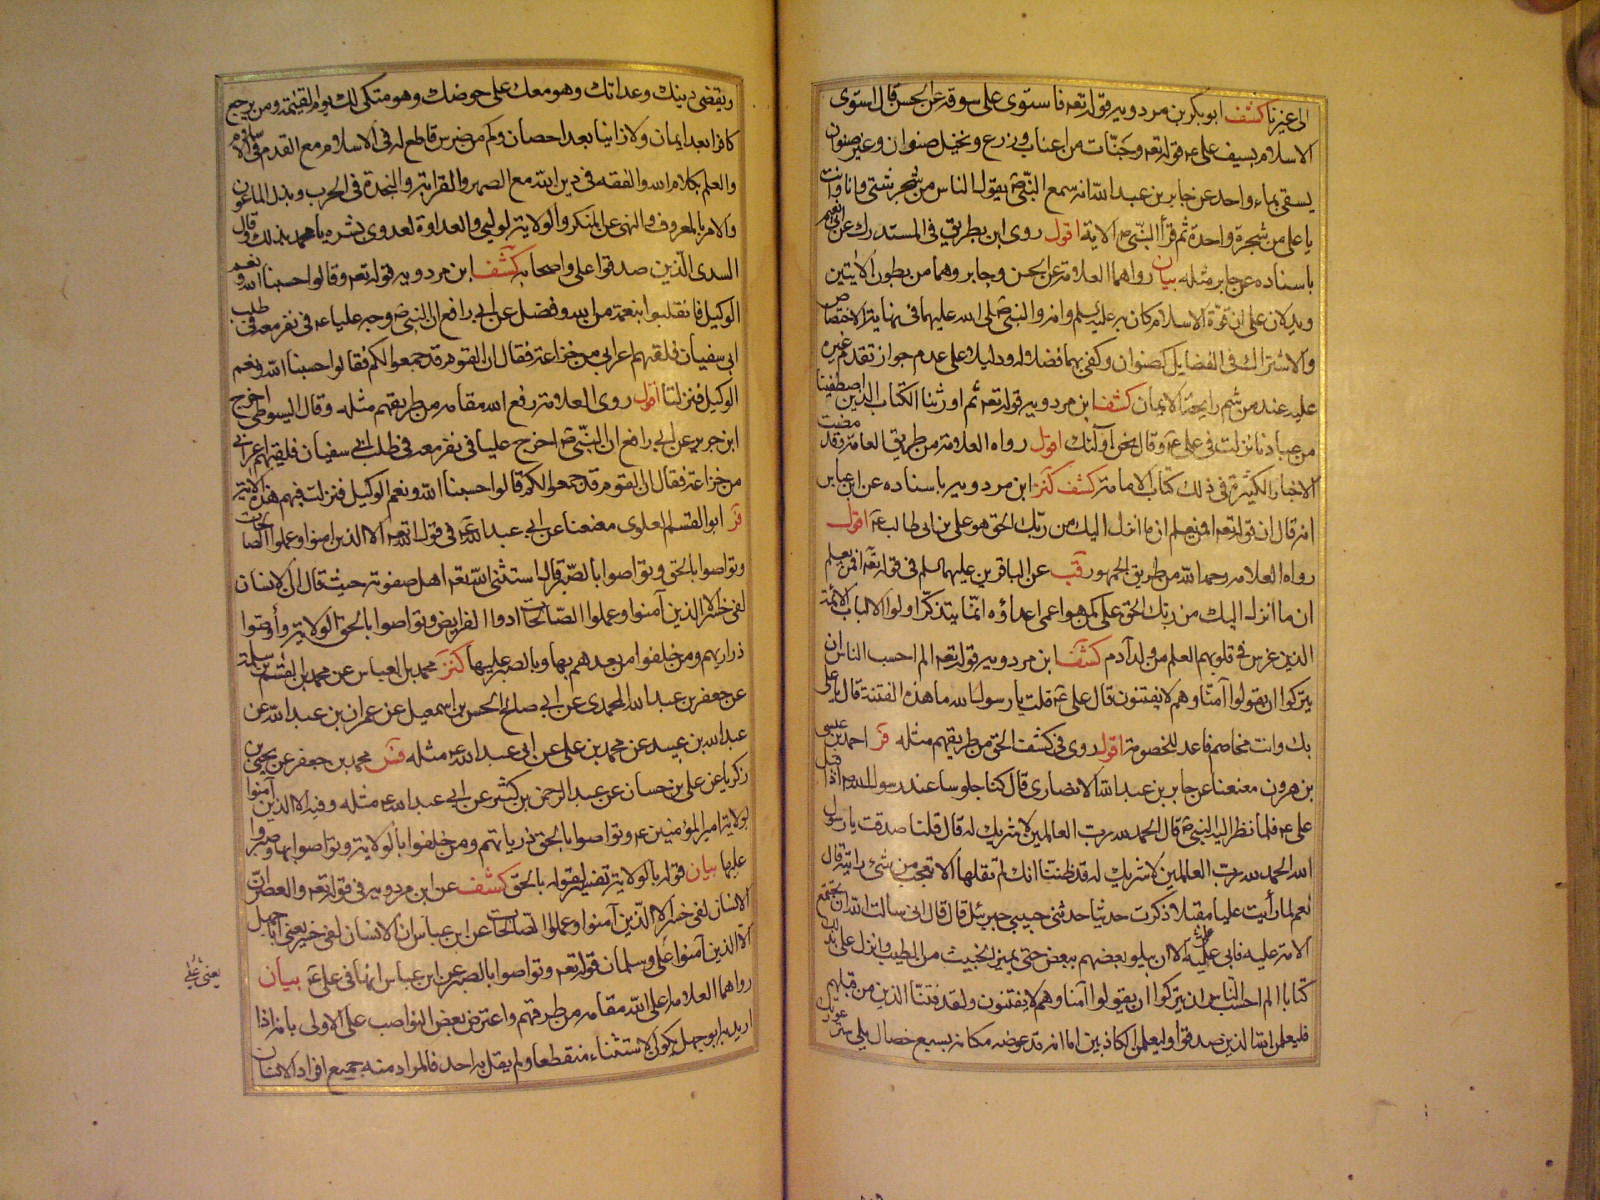 الى غيرنا كشف ابو بكر بن مردويه قوله تعه فاستوى على سوقه عن الحسن قال استوى
الاسلام بسيف على عه قوله تعه وجنّات من اعناب وزرع ونخيل صنوان وغير صنوان
يسقى بماء واحد عن جابر بن عبد الله انه سمع النبّى ص يقول الناس من شجر شتى وانا وانت
يا على من شجرة واحدة ثم قرأ النبّى ص الاية اقول روى ابن بطريق فى المستدرك عن ابى نعيم
باسناده عن جابر مثله بيان رواهما العلامة عن الحسن وجابر وهما من بطون الايتين
ويدلان على ان قوة الاسلام كان به عليه السلم وانه والنبى صلى الله عليهما فى نهاية الاختصاص
والاشتراك فى الفضايل كصنوان وكفى بهما فضلا له ودليلا على عدم جواز تقدم غيره
عليه عند من شم رايحة الايمان كشف ابن مردويه قوله تعه ثم اورثنا الكتاب الذين اصطفينا
من عبادنا نزلت فى على عه وقال نحن اولئك اقول رواه العلامة من طريق العامة وقد مضت
الاخبار الكثيرة فى ذلك كتاب الامامة كشف كنز ابن مردويه باسناده عن ابن عباس
انه قال ان قوله تعه افمن يعلم ان ما انزل اليك من ربك الحق هو على بن ابى طالب عه اقول
رواه العلامه رحمه الله من طريق الجمهور قب عن الباقرين عليهما السلم فى قوله تعه افمن يعلم
ان ما انزل اليك من ربك الحق على كمن هو اعمى اعداؤه انّما يتذكّر اولوا الالباب الائمة
الذين غرس فى قلوبهم العلم من ولد آدم كشف ابن مردويه قوله تعه الم احسب الناس ان
يتركوا ان يقولوا آمنّا وهم لا يفتنون قال على عه قلت يا رسول الله ما هذه الفتنة قال يا على
بك وانت مخاصم فاعد للخصومة اقول روى فى كشف الحق من طريقهم مثله فر احمد بن عيسى
بن هرون معنعنا عن جابر بن عبد الله الانصارى قال كنا جلوسا عند رسول الله ص اذا اقبل
على عه فلما نظر اليه النبى ص قال الحمد لله رب العالمين لا شريك له قال قلنا صدقت يا رسول
الله الحمد لله رب العالمين لا شريك له قد ظننا انك لم تقلها الا تعجب من شىء رايته قال
نعم لما رأيت عليا مقبلا ذكرت حديثا حدثنى حبيبى جبرئيل قال قال انى سالت الله ان يجتمع
الامة عليه فابى عليه الا ان يبلو بعضهم ببعض حتى يميز الخبيث من الطيب وانزل على بذلك
كتابا الم احسب الناس ان يتركوا ان يقولوا آمنا وهم لا يفتنون ولقد فتنا الذين من قبلهم
فليعلمن الله الذين صدقوا وليعلمن الكاذبين اما انه قد عوضه مكانه بسبع خصال يلى ستر عورتك
ويقضى دينك وعداتك وهو معك على حوضك وهو متكى لك يوم القيمة ومن يرجع
كافرا بعد ايمان ولا زانيا بعد احصان وكم من ضرس قاطع له فى الاسلام مع القدم فى الاسلام
والعلم بكلام الله والفقه فى دين الله مع الصهر والقرابة والنجدة فى الحرب وبذل الماعون
والامر بالمعروف والنهى عن المنكر والولاية لوليى والعداوة لعدوى بشره يا محمد بذلك وقال
السدى الّذين صدقوا على واصحابه كشف ابن مردويه قوله تعه وقالوا حسبنا الله ونعم
الوكيل فانقلبوا بنعمة من الله وفضل عن ابى رافع ان النبى ص وجه عليا عه فى نفر معه فى طلب
ابى سفيان فلقيهم اعرابى من خزاعة فقال ان القوم قد جمعوا لكم فقالوا حسبنا الله ونعم
الوكيل فنزلتا اقول روى العلامة رفع الله مقامه من طريقهم مثله وقال السيوطى اخرج
ابن جرير عن ابى رافع ان النبّى ص اخرج عليا فى نفر معه فى طلب ابى سفيان فلقيهم اعرابى
من خزاعة فقال ان القوم قد جمعوا لكم قالوا حسبنا الله ونعم الوكيل فنزلت فيهم هذه الاية
فر ابو القسم العلوى معنعنا عن ابى عبد الله عه فى قول الله تعه الا الذين امنوا وعملوا الصالحات
وتواصوا بالحق وتواصوا بالصبر قال استثنى الله تعه اهل صفوته حيث قال ان الانسان
لفى خسر الا الذين آمنوا وعملوا الصّالحات ادوا الفرايض وتواصوا بالحق الولاية وأوصوا
ذراريهم ومن خلفوا من بعدهم بها وبالصبر عليها كنز محمد بن العباس عن محمد بن القسم بن سلمة
عن جعفر بن عبد الله المحمدى عن ابى صالح الحسن بن اسمعيل عن عمران بن عبد الله عن
عبد الله بن عبيد عن محمد بن على عن ابى عبد الله عه مثله فس محمد بن جعفر عن يحيى بن
زكريا عن على بن حسان عن عبد الرحمن بن كثير عن ابى عبد الله عه مثله وفيه الا الذين آمنوا
بولاية امير المؤمنين عه وتواصوا بالحق ذرياتهم ومن خلفوا بالولاية وتواصوا بها وصبروا
عليها بيان قوله بالولاية تفسير لقوله بالحق كشف عن ابن مردويه فى قوله تعه والعصر ان
الانسان لفى خسر الا الّذين آمنوا وعملوا الصّالحات عن ابن عباس ان الانسان لفى خسر يعنى ابا جهل
الا الذين آمنوا على وسلمان قوله تعه وتواصوا بالصبر عن ابن عباس انها فى على عه بيان
يعنى على
رواهما العلامة اعلى الله مقامه من طرقهم واعترض بعض النواصب على الاولى بانه اذا
اريد به ابو جهل يكون الاستثناء منقطعا ولم يقل به احد فالمراد منه جميع افراد الانسان